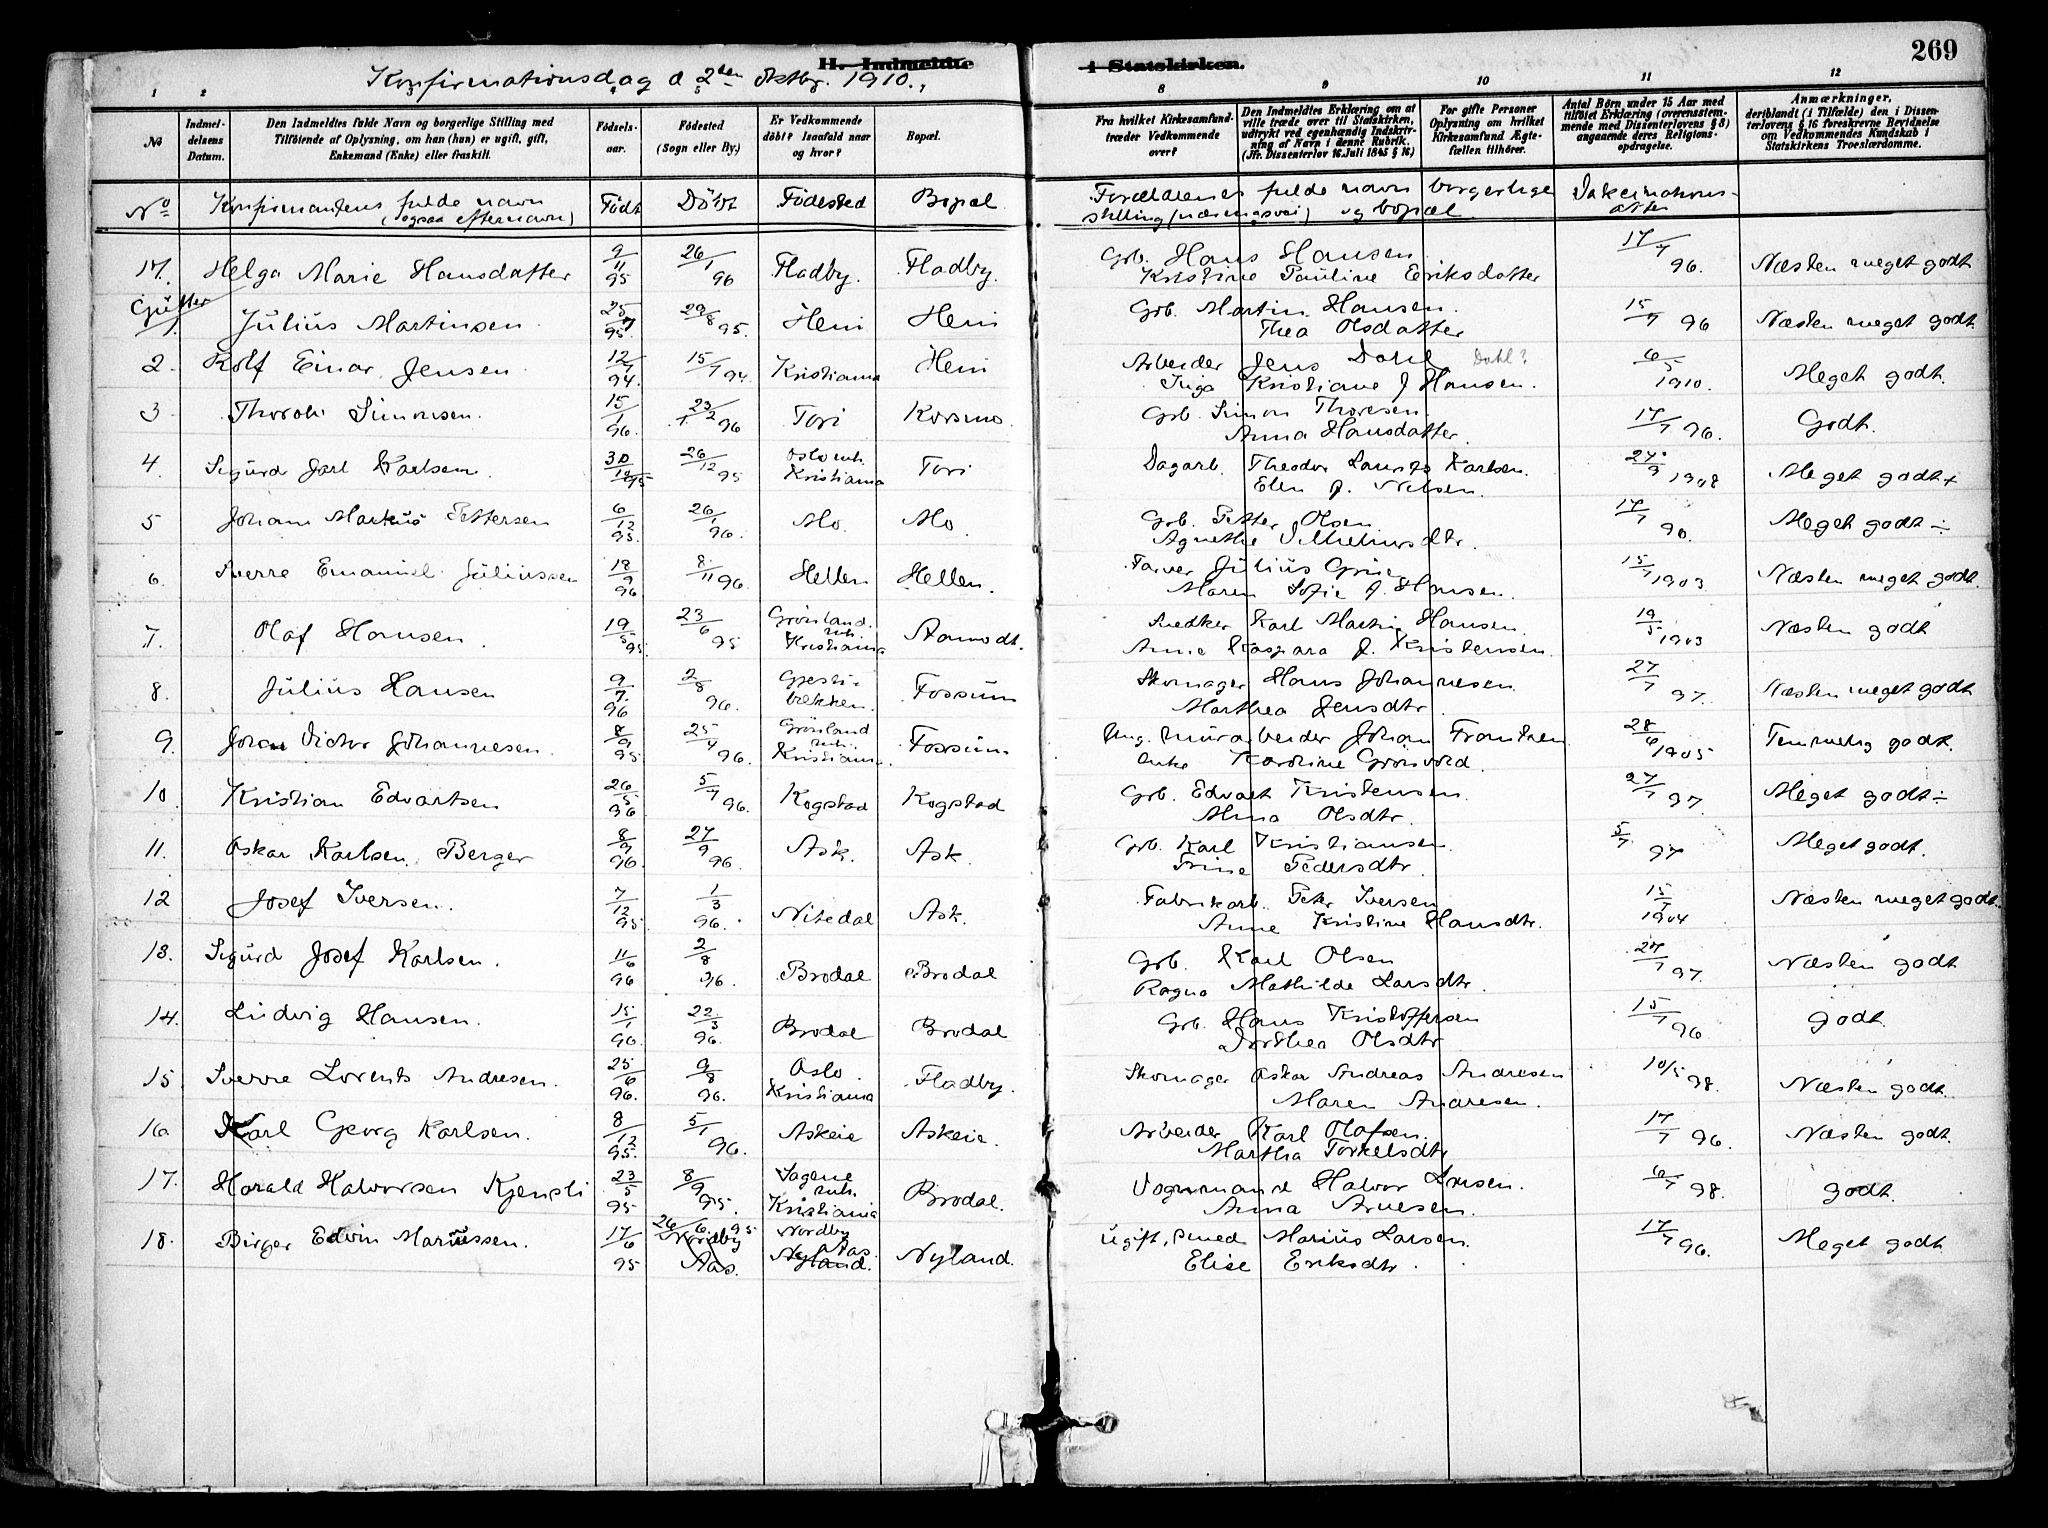 269
H. Indmeldte i Statskirken.
Konfirmationsdag d 2den oktbr. 1910.
1 2 8 9 10 11 12
No
Indmel-
delsens
Datum.
Den Indmeldtes fulde Navn og borgerlige Stilling med
Tilföiende af Oplysning, om han (hun) er ugift, gift,
Enkemand (Enke) eller fraskilt.
Födsels-
aar.
Födested
(Sogn eller By.)
Er Vedkommende
döbt? Isaafald naar
og hvor?
Bopæl.
Fra hvilket Kirkesamfund
træder Vedkommende
over?
Den Indmeldtes Erklæring om at
ville træde over til Statskirken,
udtrykt ved egenhændig Indskriv-
ning af Navn i denne Rubrik.
(Jfr. Dissenterlov 16 Juli 1845 § 16)
For gifte Personer
Oplysning om hvilket
Kirkesamfund Ægte-
fællen tilhörer.
Antal Börn under 15 Aar med
tilföiet Erklæring (overensstem-
mende med Dissenterlovens § 8)
angaaende deres Religions-
opdragelse.
Anmærkninger,
deriblandt (i Tilfælde) den i Dissen-
terlovens § 16 foreskrevne Bevidnelse
om Vedkommendes Kundskab i
Statskirkens Troeslærdomme.
No Konfirmantens fulde navn Födt Döbt Födested Bopæl Forældrenes fulde navn borgerlige
(ogsaa efternavn) stilling (næringsvei) og bopæl
17. Helga Marie Hansdatter 9/11 95 26/1 96 Fladby. Fladby. Grb. Hans Hansen 17/7 96. Næsten meget godt
Kristine Pauline Eriksdatter
Gutter
1. Julius Martinsen 25/7 95. 29/8 95. Heni Heni Grb. Martin Hansen. 15/7 96 Næsten meget godt.
Thea Olsdatter
2. Rolf Einar Jensen 12/7 94. 15/7 94. Kristiania Heni Arbeider Jens Dahl Dahl? 6/5 1910. Meget godt.
Inga Kristiane J Hansen.
3. Simonsen. 15/1 96. 23/2 96 Tori Korsmo. Grb. Simon Thoresen. 17/7 96. Godt.
Anna Hansdatter.
4. Sigurd Jarl Karlsen 30/10 95 26/12 95 Oslo mh. Kristiania Tori Dagarb. Theodor Laurits Karlsen. 24/3 1908 Meget godt+
Elen J. Nilsen.
5 Johan Markus Pettersen 6/12 95. 26/1 96. Mo. Mo. Grb. Petter Olsen Meget godt ÷
Agnethe Vilhelmsdtr.
6. Sverre Emanuel Juliussen 18/9 96 8/11 96. Hellen Hellen. Farver Julius Grue 15/7 1903 Næsten meget godt.
Maren Sofie J. Hansen.
7. Olaf Hansen 19/5 95. 23/6 95 Grønland mh. Kristiania Aamodt. Snedker Karl Martin Hansen. 19/5 1903 Næsten godt
Anne Kaspara J. Kristensen.
8. Julius Hansen 9/7 96 2/8 96. Gjesti- bækken. Fossum Skomager Hans Johannesen. 27/7 97. Næsten meget godt
Marthea Jensdtr.
9. Johan Victor Johannesen. 8/9 95. 25/4 96. Grønland mh. Kristiania. Fossum Ung. murarbeider Johan Frantzen 28/6 1905 Temmelig godt.
enke Karoline Grønvold.
10. Kristian Edvartsen 26/5 96 5/7 96. Kogstad Kogstad Grb. Edvart Kristensen. 27/7 97. Meget godt ÷
Olsdtr.
11. Oskar Karlsen Berger 8/9 96. 27/9 96. Ask. Ask. Grb. Karl Kristiansen. 5/7 97 Meget godt.
Trine Pedersdtr.
12 Josef Iversen. 7/12 95 1/3 96. Nitedal Ask. Fabrikarb. Petr Iversen 15/7 1904 Næsten meget godt.
Anne Kristine Hansdtr.
13. Sigurd Josef Karlsen. 11/6 96 2/8 96. Brodal Brodal Grb. Karl Olsen 27/7 97. Næsten godt
Ragna Mathilde Larsdtr.
14. Ludvig Hansen. 15/1 96. 22/3 96. Brodal Brodal Grb. Hans Kristoffersen 15/7 96 godt.
Dorthea Olsdtr
15. Sverre Lorents Andresen. 25/6 96. 9/8 96. Oslo Kristiania Fladby. Skomager Oskar Andreas Andresen 10/5 98. Næsten godt.
Maren Andresen.
16 Karl Georg Karlsen. 8/12 95. 5/1 96. Askeie Askeie. Arbeider Karl Olafsen. 17/7 96. Næsten godt.
Martha Torkelsdtr
17. Harald Halvorsen Kjensli 23/5 95 8/9 95. Sagene mh. Kristiania Brodal. Vognmand Halvor 6/7 98. godt.
Anna
18. Birger Edvin Mariussen. 17/6 95 26/6 95 Nordby Aas. Nordby Aas. Nyland. Nyland. Ugift, smed Marius Larsen. 17/7 96. Meget godt
Elise Eriksdtr.